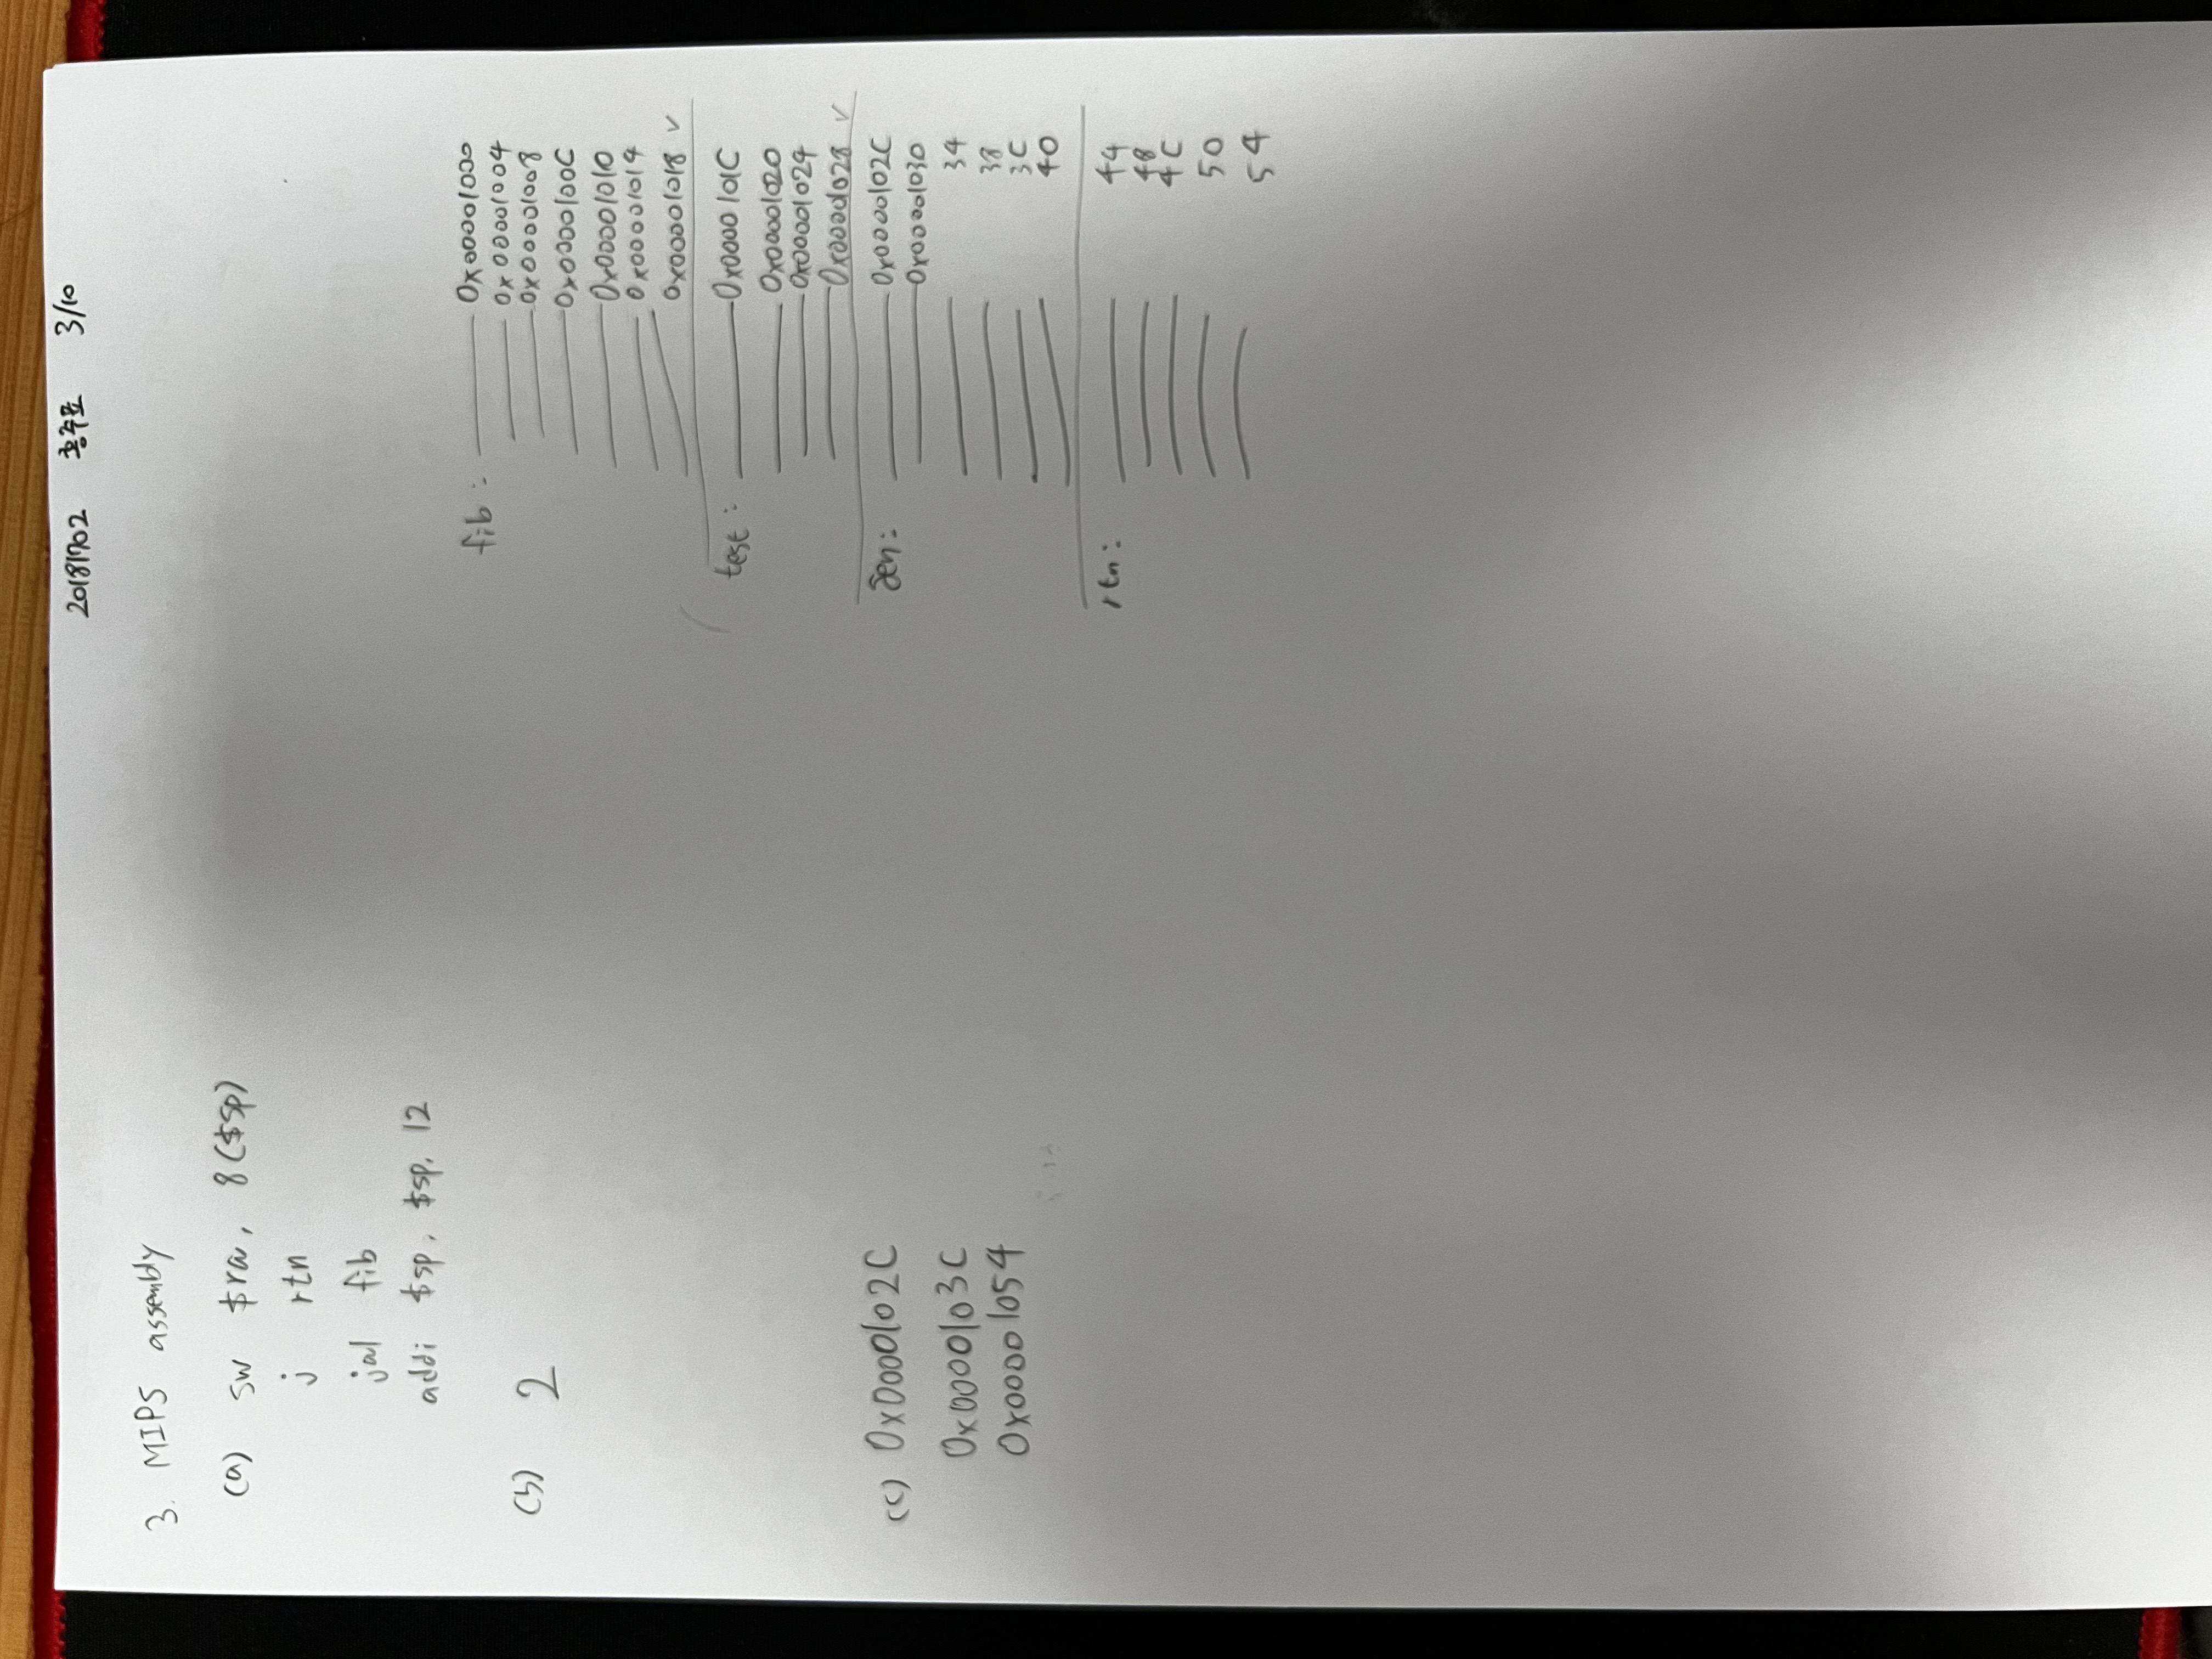 20181702 홍주표 3/10
3. MIPS assembly
(a) sw $ra, 8($sp)
j rtn
jal fib
addi $sp, $sp, 12
(b) 2
(c) 0x0000102C
0x0000103C
0x00001054
fib: 0x00001000
0x00001004
0x00001008
0x0000100C
0x00001010
0x00001014
0x00001018 ✓
test: 0x0000101C
0x00001020
0x00001024
0x00001028 ✓
gen: 0x0000102C
0x00001030
34
38
3C
40
rtn: 44
48
4C
50
54